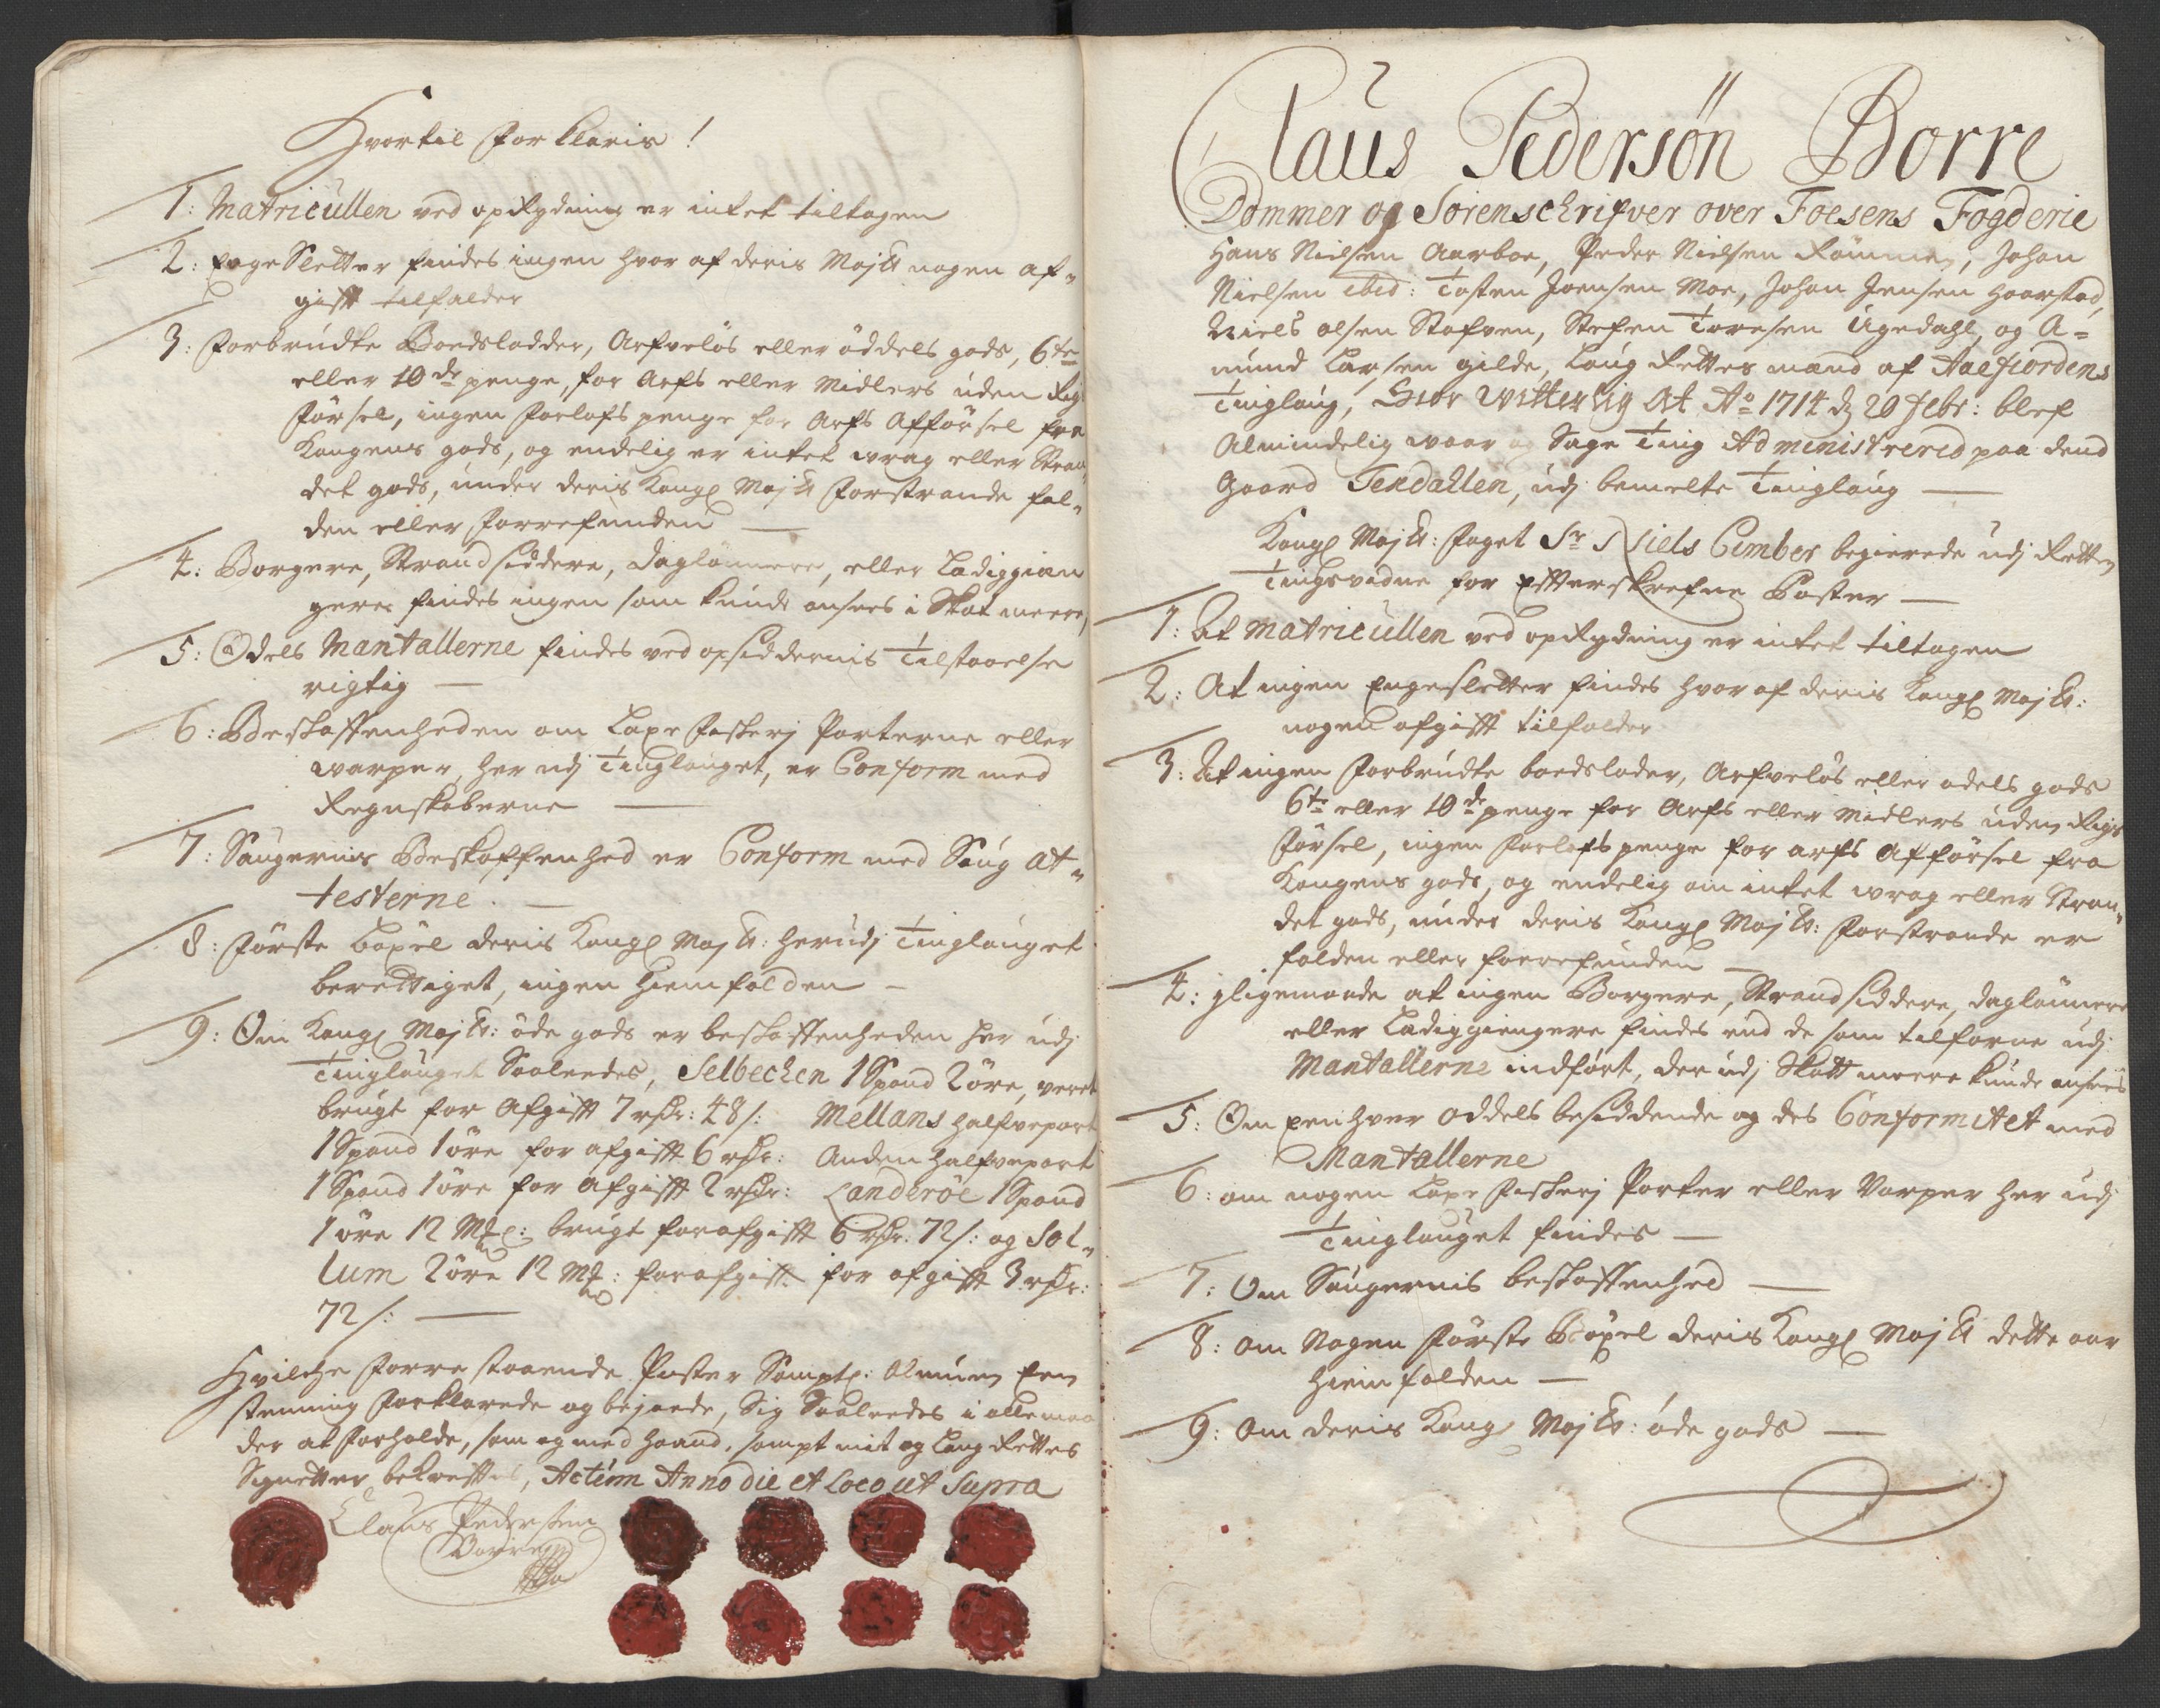 Hvortil forklaris!
1: Matricullen ved opRydning er intet tiltagen
2: Enge Sletter findes ingen hvor af deris Maj:tt nogen af-
gifft tilfalder
3: Forbrudte Boedslodder, Arfveløs eller øddels gods, 6te
eller 10de penge, for Arfs eller Midlers uden Rigs
Førsel, ingen Forlofs penge for Arfs Afførsel fra
Kongens gods, og endelig er intet wrag eller Stran-
det gods, under deris Kongl Maj:tt Forstrande fal-
den eller forrefunden —
4: Borgere, Strandsiddere, Daglønnere, eller Ladiggien
gere findes ingen som kunde ansees i Skat meere
5: Odels Mantallerne findes ved opsiddernis Tilstaaelse
rigtig —
6: Beskaffenheden om Laxe Fiskerj Parterne eller
warper, her udj Tinglauget, er Conform med
Regnskaberne —
7: Saugernis Beskaffenhed er Conform med Saug at-
testerne. —
8: Første Boxel deris Kongl Maj:tt: herudj Tinglauget
berettiget, ingen hiemfalden —
9: Om Kongl Maj:tt: øde gods er beskaffenheden her udj
Tinglauget Saaleedes, Selbechen 1 Spand 2 øre, veret
brugt for Afgifft 7 rdr: 48 s: Mellans halfvepart
1 Spand 1 øre for afgifft 6 rdr: Anden halfvepart
1 Spand 1 øre for Afgifft 2 rdr: Landerøe 1 Spand
1 øre 12 Mkl: brugt for afgifft 6 rdr: 72 s: og Sol-
lum 2 øre 12 Mk: for afgifft for afgifft 3 rdr:
72 s: —
Hvilche Forrestaaende Poster Samptl: Almuen Een
stemmig Forklarede og bejaede, Sig Saaleedes i alle maa
der at forholde, som og med haand, sampt mit og Laug Rettes
Signetter bekrefftes, Actum Anno die et Loco ut Supra
Claus Pedersen
Borre
Claus Pedersøn Borre
Dommer og Sorenschrifver over Foesens Fogderie
Hans Nielsen Aarboe, Peder Nielsen Rømmen, Johan
Nielsen ibid: Tosten Joensen Moe, Johan Jensen Haarstad,
Niels Olsen Stafven, Stefen Toresen Ugedahl, og A-
mund Larsen Gilde, Laug Rettes mænd af Aaefiordens
Tinglaug, Giør Witterlig At Ao 1714 d 20 Febr: blef
Almindelig waar og Sage Ting Administrered paa dend
Gaard Tendallen, udj bemelte Tinglaug —
Kongl Maj:tt: Foget Sr Niels Cimber begierede udj Retten
Tingsvidne for Efterskrefne Poster —
1: At Matricullen ved opRydning er intet tiltagen
2: At ingen Engesletter findes hvor af deris Kongl Maj:tt:
nogen afgifft tilfalder
3: At ingen Forbrudte boedsloder, Arfveløs eller odels gods
6te eller 10de penge for Arfs eller Midlers uden Rigs
Førsel, ingen Forlofs penge for arfs Afførsel fra
Kongens gods, og endelig om intet wrag eller Stran-
det gods, under deris Kongl Maj:tt: Forstrande er
falden eller forrefunden —
4: ligemaade at ingen Borgere, Strandsiddere, Daglønnere
eller Ladiggiengere findes end de som tilforne udj
Mantallerne indført, der udj Skatt meere kunde ansees
5: Om Eenhver Oddels besiddende og des Conformitet med
Mantallerne
6: om nogen Laxe Fiskerj Parter eller Varper her udj
Tinglauget findes —
7: Om Saugernis beskaffenhed —
8: om Nogen Første Bøxel deris Kongl Maj:tt dette aar
hiemfalden —
9: Om deris Kongl Maj:tt: øde gods —